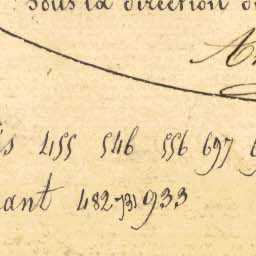 sous la direction d
A
is 455 546 556 697
ant 482 731 933